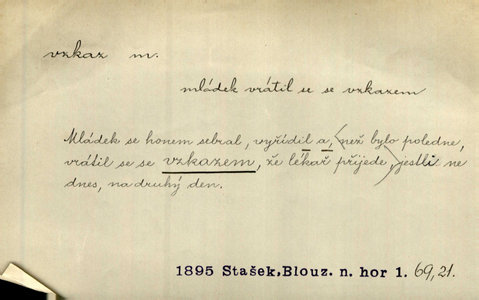 vzkaz m.
mládek vrátil se se vzkazem
Mládek se honem sebral, vyřídil a, než bylo poledne,
vrátil se se vzkazem, že lékař přijede, jestli ne
dnes, na druhý den.
1895 Stašek, Blouz. n. hor 1. 69,21.